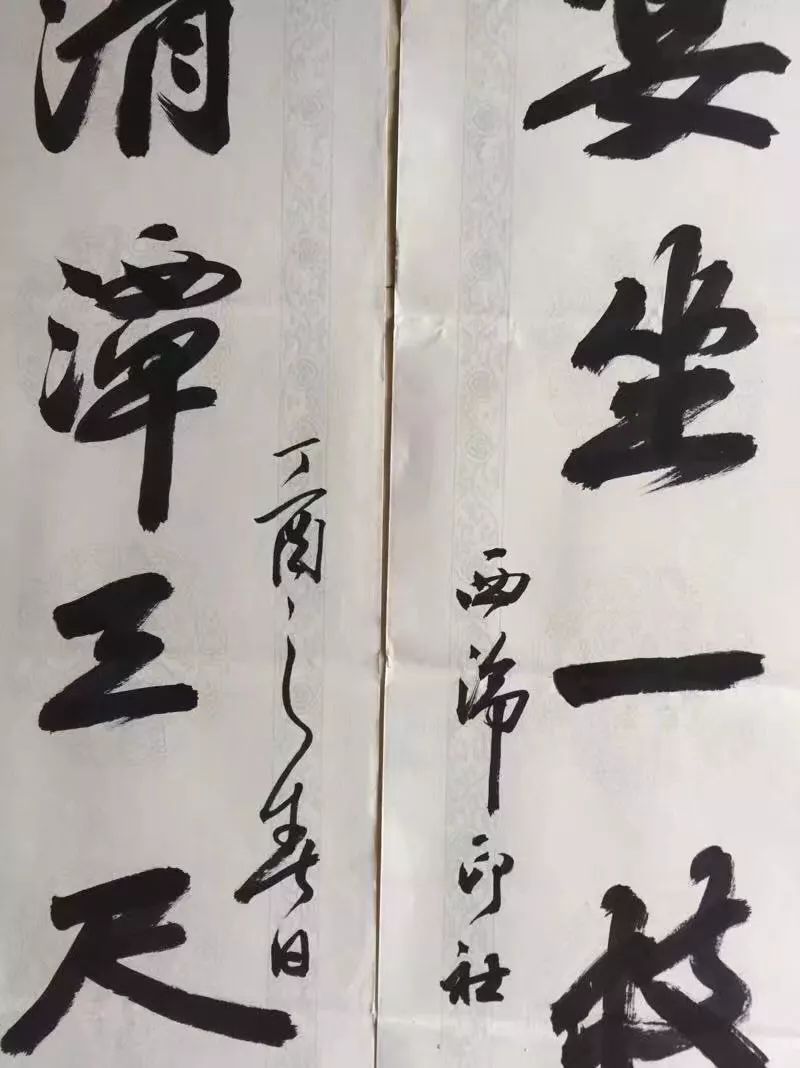 宴坐一枝
西泠印社
丁酉之春日
清潭三尺